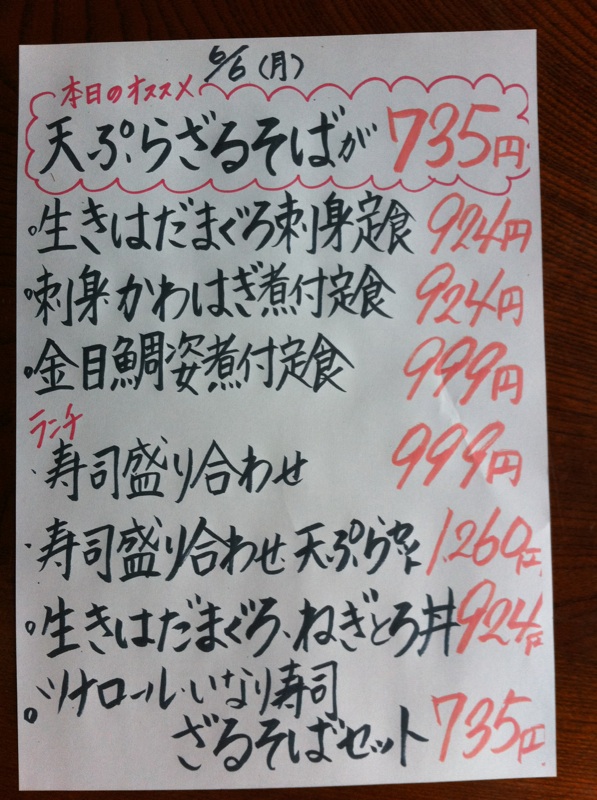 6/6(月)
本日のオススメ
天ぷらざるそばが 735円
生きはだまぐろ刺身定食 924円
刺身・かわはぎ煮付定食 924円
金目鯛姿煮付定食 999円
ランチ
・寿司盛り合わせ 999円
・寿司盛り合わせ天ぷらセット 1.260円
生きはだまぐろ、ねぎとろ丼 924円
ツナロール・いなり寿司
ざるそばセット 735円